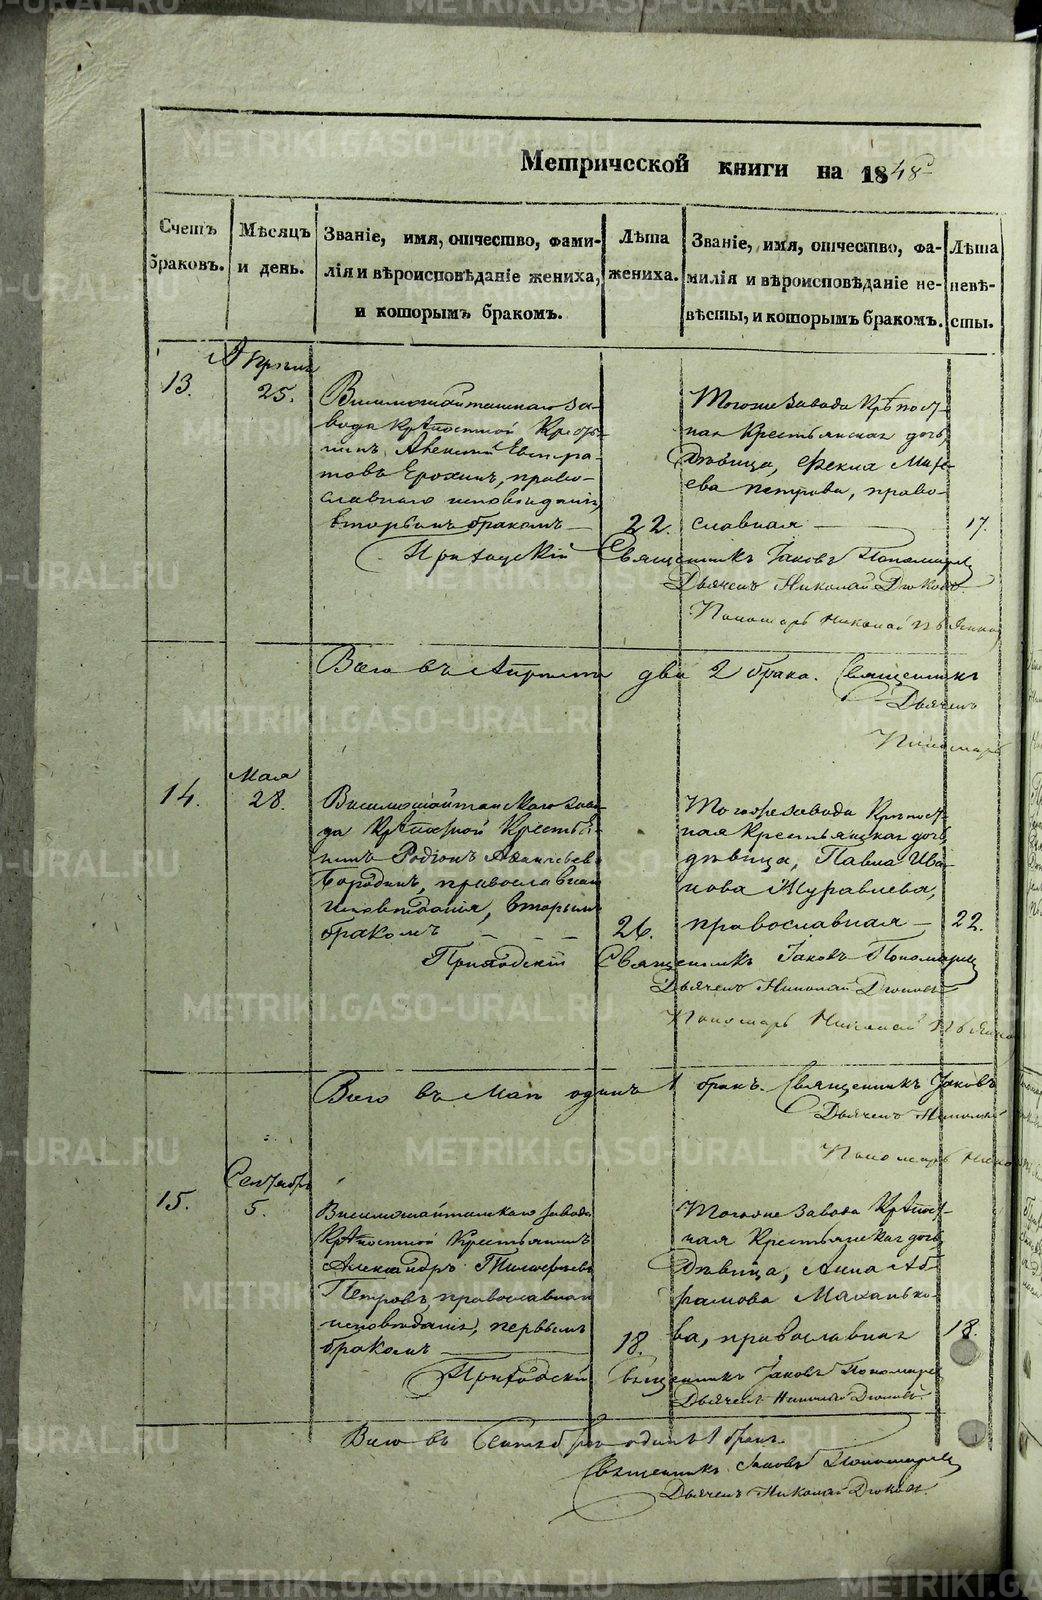 METRIKI.GASO-URAL.RU
Метрической книги на 1848 г
Счетъ браковъ.
Мѣсяцъ и день.
Званіе, имя, отчество, фами-
лія и вѣроисповѣданіе жениха,
и которымъ бракомъ.
Лѣта
жениха.
Званіе, имя, отчество, фа-
милія и вѣроисповѣданіе не-
вѣсты, и которымъ бракомъ.
Лѣта
невѣ-
сты.
13.
Апрѣля
25.
Висимошайтанскаго за-
вода Крѣпостной Кресть-
янинъ
Ерохинъ, право-
славнаго исповѣданія,
вторымъ бракомъ —
22.
Тогоже завода Крѣпост-
ная Крестьянская дочь,
дѣвица, Фекла
ева Петрова, право-
славная —
17.
Приходскій Священникъ Іаковъ Пономаревъ
Дьячекъ Николай Дюковъ.
Пономарь Николай
Всего въ Апрѣлѣ два 2 брака. Священникъ
Дьячекъ
Пономарь
14.
Мая
28.
Висимошайтанскаго заво-
да Крѣпостной Крестья-
нинъ Родіонъ
Бородинъ, православнаго
исповѣданія, вторымъ
бракомъ — — —
26.
Тогоже завода Крѣпост-
ная Крестьянская дочь,
дѣвица, Павла Ива-
нова Журавлева,
православная —
22.
Приходскій Священникъ Іаковъ Пономаревъ
Дьячекъ Николай Дюковъ
Пономарь Николай
Всего въ Маѣ одинъ 1 бракъ. Священникъ Іаковъ
Дьячекъ Николай
Пономарь
15.
Сентябрь
5.
Висимошайтанскаго завода
Крѣпостной Крестьянинъ
Александръ Тимофеевъ
Петровъ, православнаго
исповѣданія, первымъ
бракомъ —
18.
Тогоже завода Крѣпост-
ная Крестьянская дочь,
дѣвица, Анна Аб-
рамова Маханько-
ва, православная
18.
Приходскій Священникъ Іаковъ Пономаревъ
Дьячекъ Николай Дюковъ.
Всего въ Сентябрѣ одинъ 1 бракъ.
Священникъ Іаковъ Пономаревъ
Дьячекъ Николай Дюковъ.